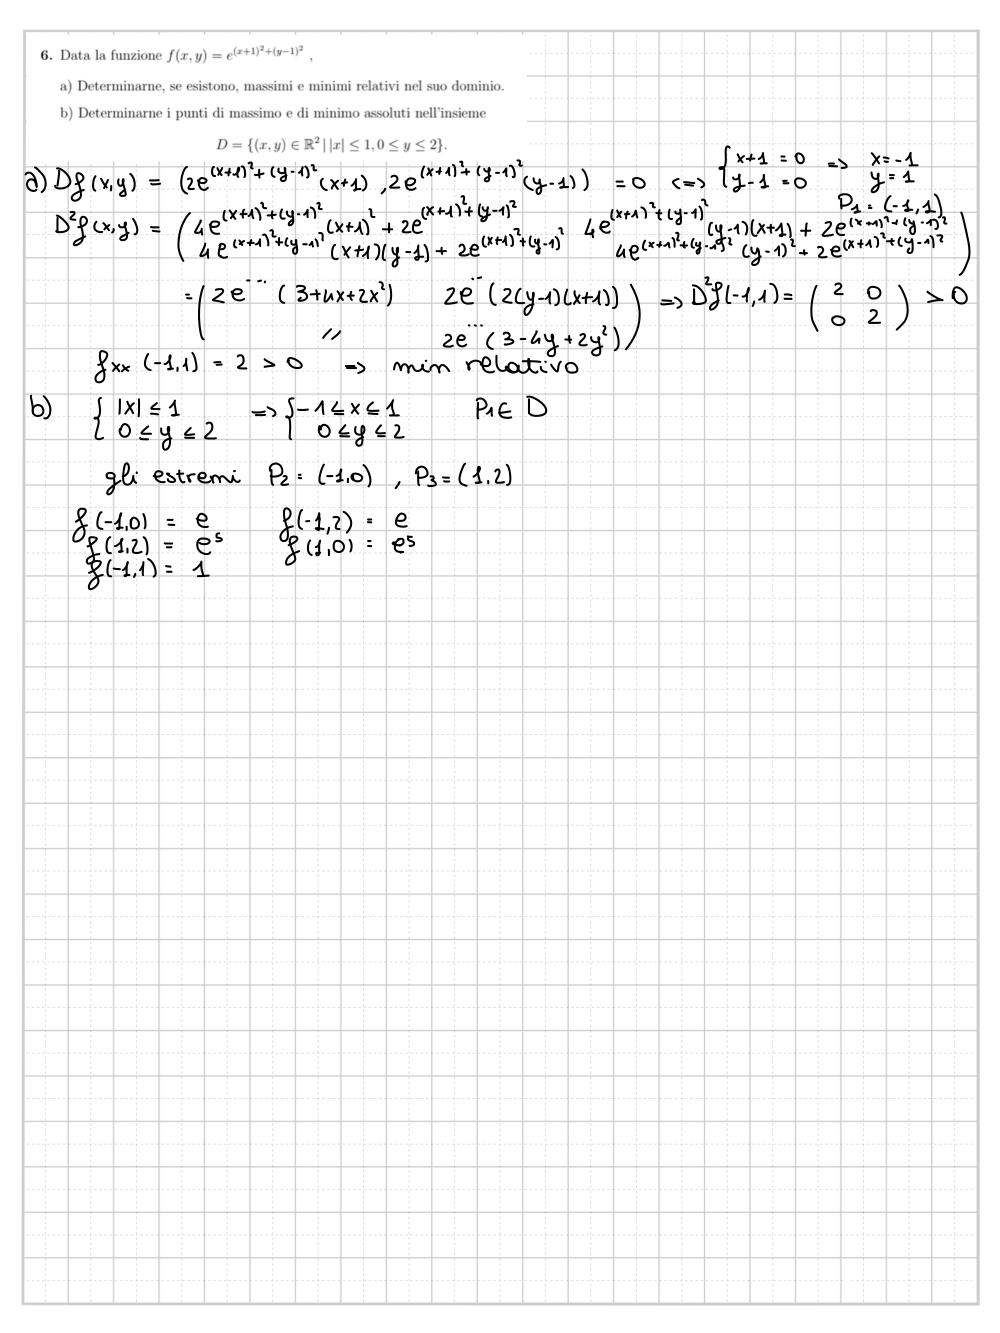 6. Data la funzione f(x, y) = e^{(x+1)^2+(y−1)^2} ,
a) Determinarne, se esistono, massimi e minimi relativi nel suo dominio.
b) Determinarne i punti di massimo e di minimo assoluti nell'insieme
D = {(x, y) ∈ ℝ^2 | |x| ≤ 1, 0 ≤ y ≤ 2}.
a) Df(x,y) = (2e^{(x+1)^2+(y-1)^2}(x+1), 2e^{(x+1)^2+(y-1)^2}(y-1)) = 0 <=> { x+1 = 0 => x=-1
y-1 = 0 y=1
P1 = (-1,1)
D^2f(x,y) = ( 4e^{(x+1)^2+(y-1)^2}(x+1)^2 + 2e^{(x+1)^2+(y-1)^2} 4e^{(x+1)^2+(y-1)^2}(y-1)(x+1) + 2e^{(x+1)^2+(y-1)^2}
4e^{(x+1)^2+(y-1)^2}(x+1)(y-1) + 2e^{(x+1)^2+(y-1)^2} 4e^{(x+1)^2+(y-1)^2}(y-1)^2 + 2e^{(x+1)^2+(y-1)^2} )
= ( 2e^{...} (3+4x+2x^2) 2e^{...} (2(y-1)(x+1)) ) => D^2f(-1,1) = ( 2 0 ) > 0
( // 2e^{...} (3-4y+2y^2) ) ( 0 2 )
fxx (-1,1) = 2 > 0 => min relativo
b) { |x| ≤ 1 => { -1 ≤ x ≤ 1 P1 ∈ D
{ 0 ≤ y ≤ 2 { 0 ≤ y ≤ 2
gli estremi P2 = (-1,0) , P3 = (1,2)
f(-1,0) = e f(-1,2) = e
f(1,2) = e^5 f(1,0) = e^5
f(-1,1) = 1